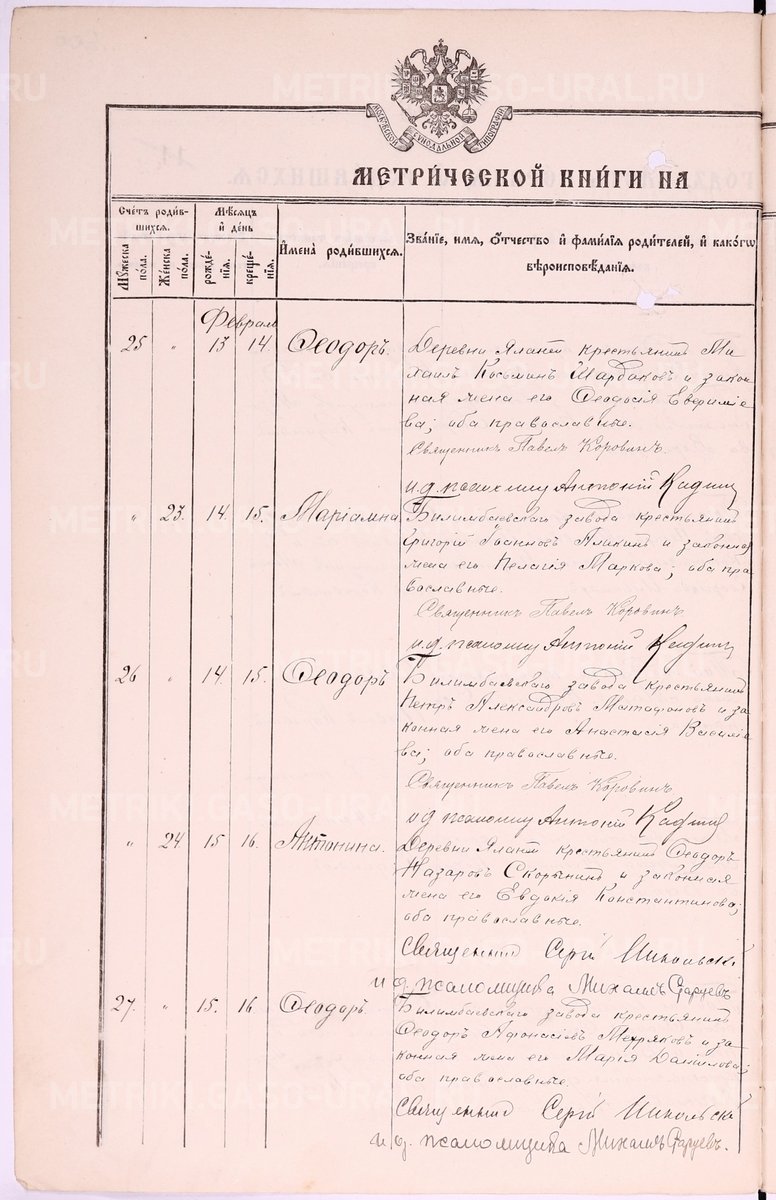 МОСКОВСКОЙ СѴНОДАЛЬНОЙ ТИПОГРАФІИ
МЕТРИ́ЧЕСКОЙ КНИ́ГИ НА
Счетъ роди́в-
шихся.
Мѣсяцъ
и день
Имена̀ роди́вшихся.
Зва́ніе, имя, отчество и фами́лія роди́телей, и како́гѡ
вѣроисповѣ́данія.
Мужеска по́ла.
Женска по́ла.
рожде́нія.
креще́нія.
Феврал
25 " 13 14. Ѳеодоръ. Деревни Яланъ крестьянинъ Ми-
хаилъ Косьминъ Шардаковъ и закон-
ная жена его Ѳеодосія Евфиміе-
ва; оба православные.
Священникъ Павелъ Коровинъ.
и.д. псаломщ Антоній
" 23. 14. 15. Маріамна. Билимбаевскаго завода крестьянинъ
Григорій Іоанновъ Аликинъ и законная
жена его Пелагія Маркова; оба пра-
вославные.
Священникъ Павелъ Коровинъ
и.д. псаломщ Антоній
26 " 14. 15. Ѳеодоръ Билимбаевскаго завода крестьянинъ
Петръ Александровъ Матафоновъ и за-
конная жена его Анастасія Василіе-
ва; оба православные.
Священникъ Павелъ Коровинъ
и д псаломщ Антоній
" 24 15 16. Антонина. Деревни Яланъ крестьянинъ Ѳеодоръ
Назаровъ Скорынинъ и законная
жена его Евдокія Константинова;
оба православные.
Священникъ Сергій Никольскій
и д. псаломщика Михаилъ
27. " 15. 16 Ѳеодоръ. Билимбаевскаго завода крестьянинъ
Ѳеодоръ Аѳонасіевъ Мехряковъ и за-
конная жена его Марія Даніилова;
оба православные.
Священникъ Сергій Никольскій
и. д. псаломщика Михаилъ